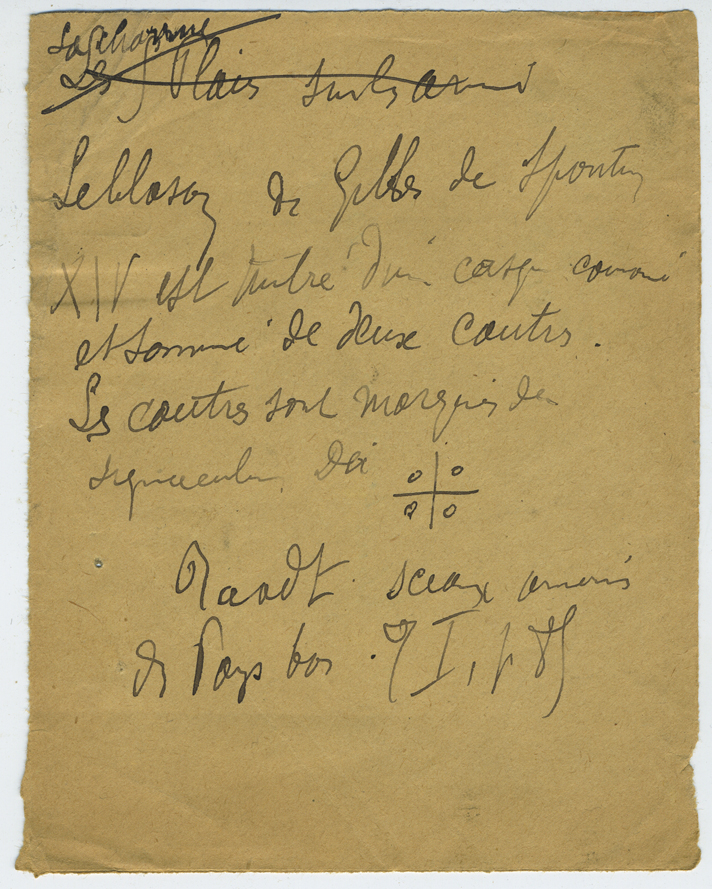 La charrue
Les fléaux sur les armes
Le blason de Gilles de Spontin
XIV est timbré d'un casque couronné
et sommé de deux coutres.
Les coutres sont marqués de
signaculum Dei
Raadt. sceaux armoriés
des Pays bas. T I, p